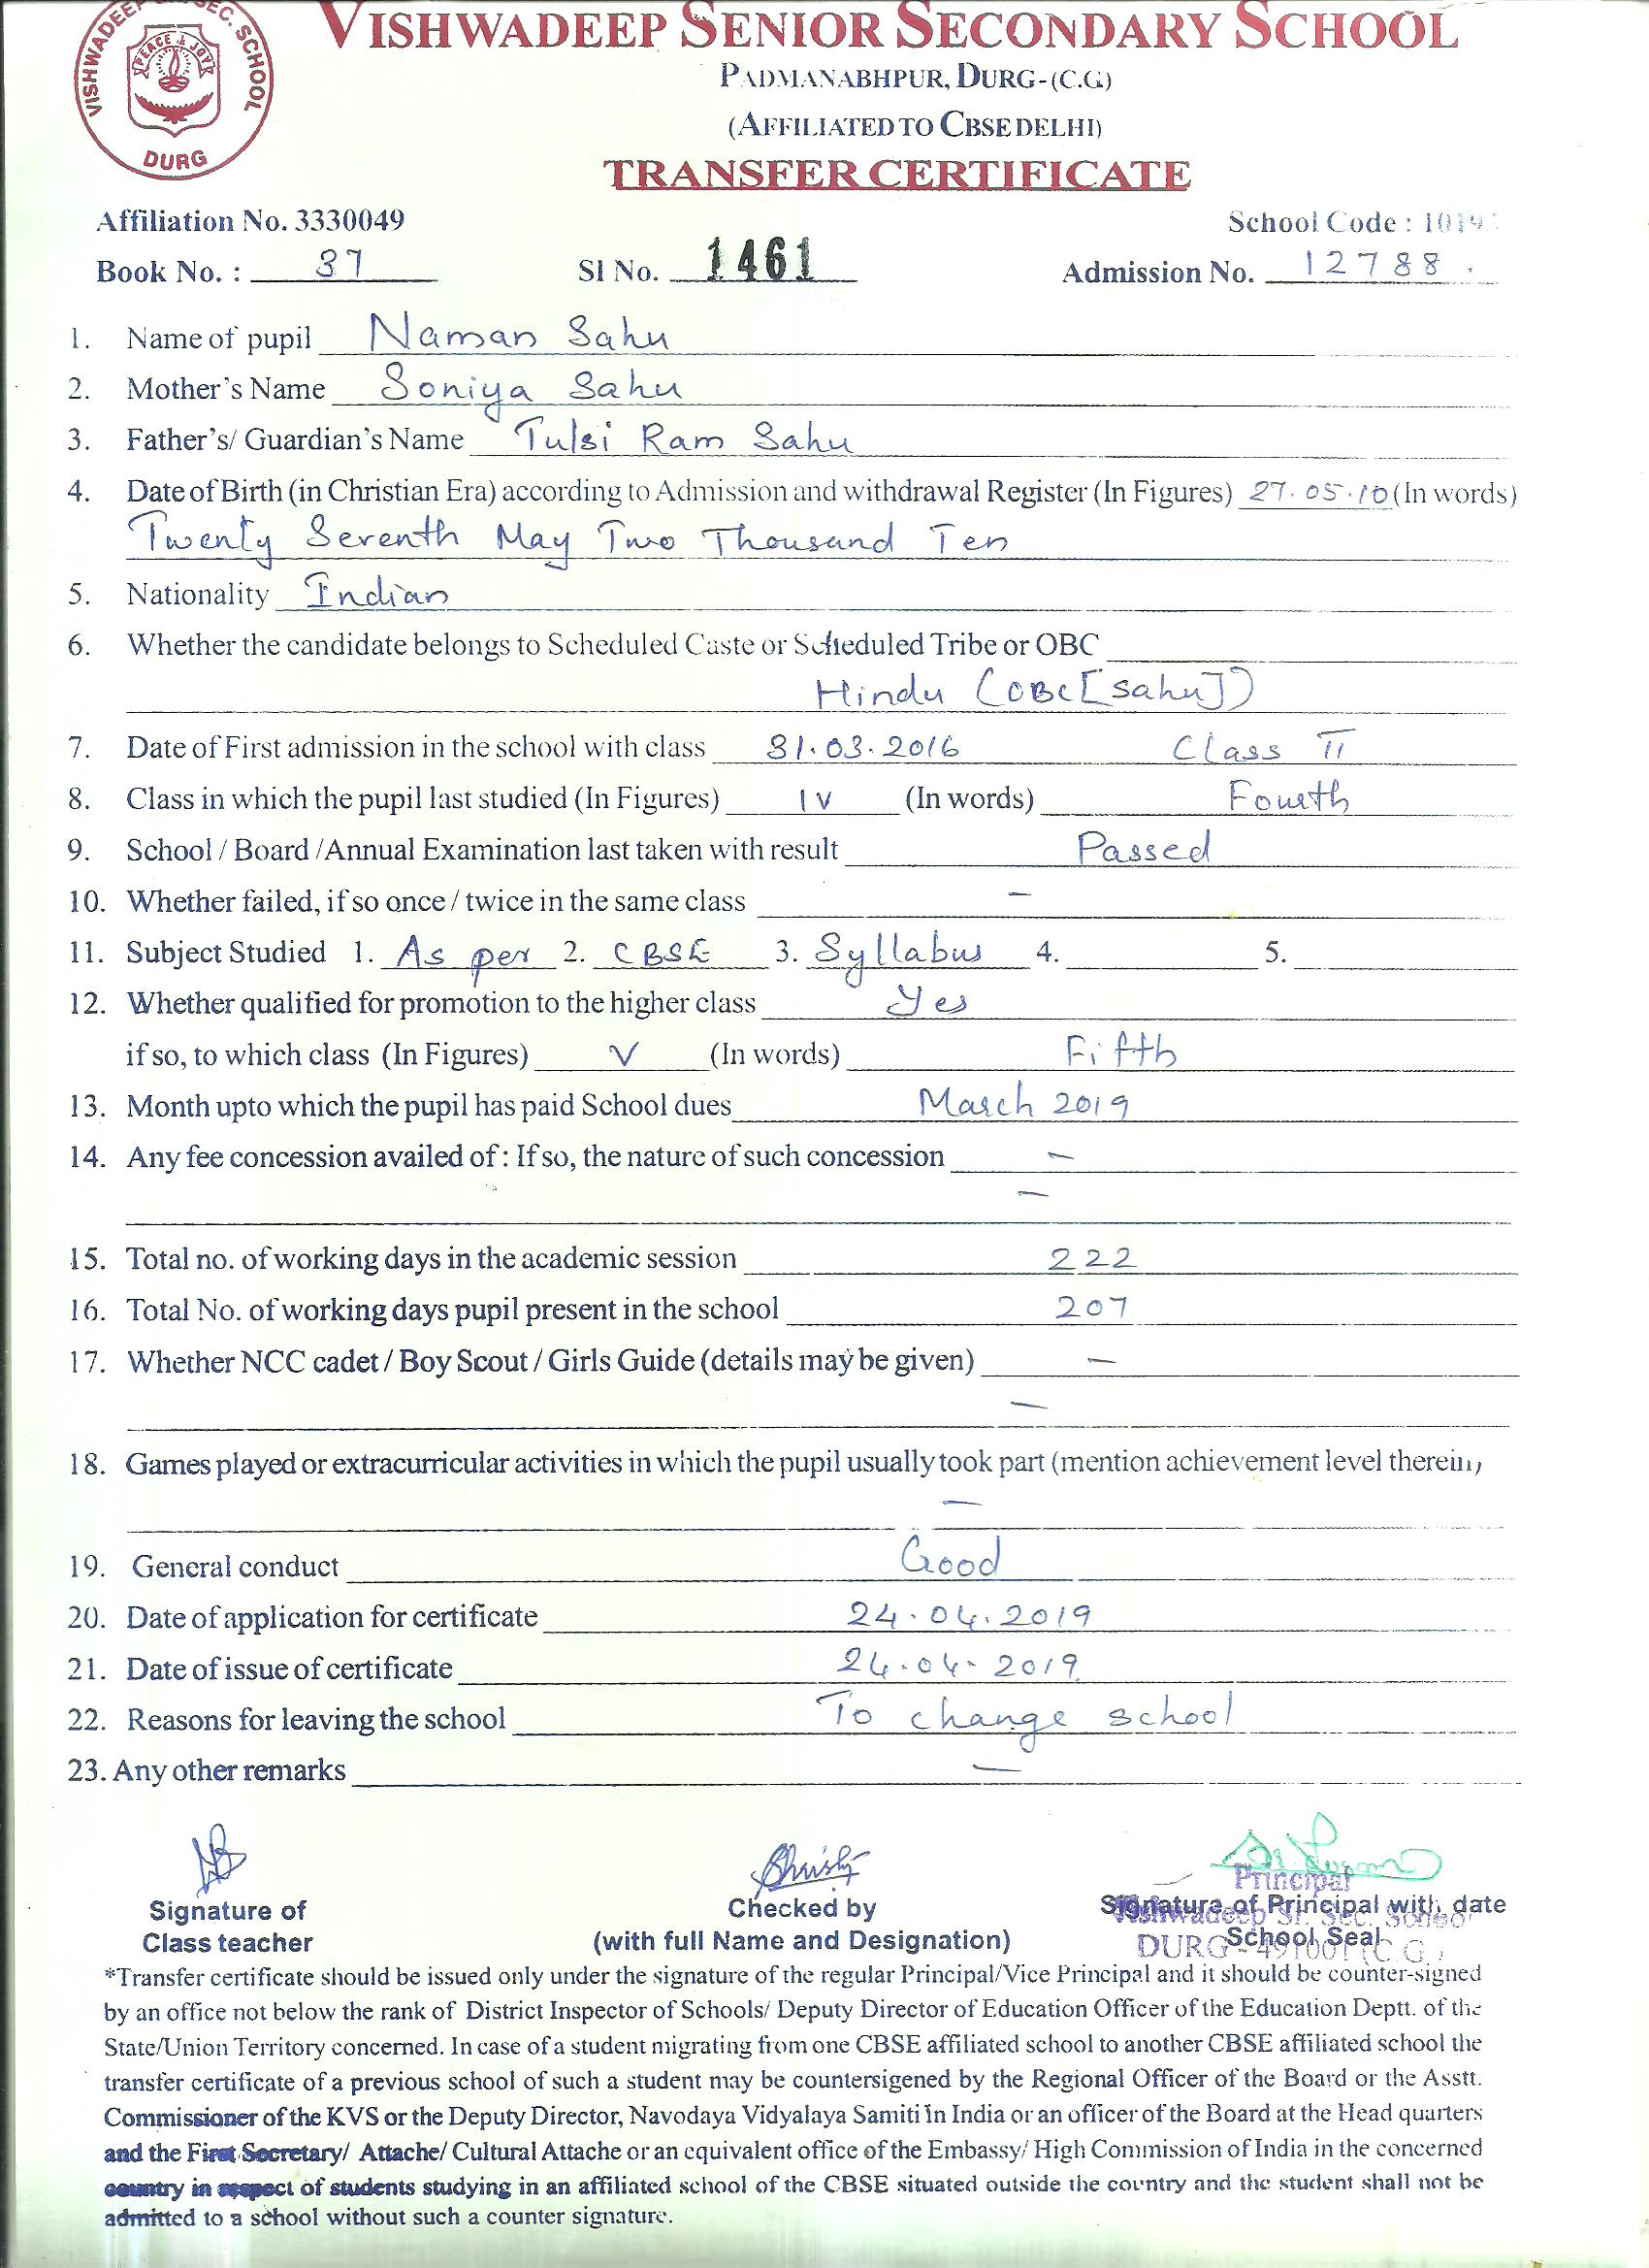 VISHWADEEP SR. SEC. SCHOOL
PEACE & JOY
DURG
VISHWADEEP SENIOR SECONDARY SCHOOL
PADMANABHPUR, DURG-(C.G)
(AFFILIATED TO CBSE DELHI)
TRANSFER CERTIFICATE
Affiliation No. 3330049 School Code :
Book No. : 37 Sl No. 1461 Admission No. 12788.
1. Name of pupil Naman Sahu
2. Mother's Name Soniya Sahu
3. Father's/ Guardian's Name Tulsi Ram Sahu
4. Date of Birth (in Christian Era) according to Admission and withdrawal Register (In Figures) 27.05.10 (In words)
Twenty Seventh May Two Thousand Ten
5. Nationality Indian
6. Whether the candidate belongs to Scheduled Caste or Scheduled Tribe or OBC
Hindu (OBC[Sahu])
7. Date of First admission in the school with class 31.03.2016 Class II
8. Class in which the pupil last studied (In Figures) IV (In words) Fourth
9. School / Board /Annual Examination last taken with result Passed
10. Whether failed, if so once / twice in the same class –
11. Subject Studied 1. As per 2. CBSE 3. Syllabus 4. 5.
12. Whether qualified for promotion to the higher class Yes
if so, to which class (In Figures) V (In words) Fifth
13. Month upto which the pupil has paid School dues March 2019
14. Any fee concession availed of : If so, the nature of such concession –
–
15. Total no. of working days in the academic session 222
16. Total No. of working days pupil present in the school 207
17. Whether NCC cadet / Boy Scout / Girls Guide (details may be given) –
–
18. Games played or extracurricular activities in which the pupil usually took part (mention achievement level therein)
–
19. General conduct Good
20. Date of application for certificate 24.04.2019
21. Date of issue of certificate 24.04.2019
22. Reasons for leaving the school To change school
23. Any other remarks –
Principal
Signature of Checked by Signature of Principal with date
Vishwadeep Sr. Sec. School
Class teacher (with full Name and Designation) School Seal
DURG - 491001 (C.G.)
*Transfer certificate should be issued only under the signature of the regular Principal/Vice Principal and it should be counter-signed
by an office not below the rank of District Inspector of Schools/ Deputy Director of Education Officer of the Education Deptt. of the
State/Union Territory concerned. In case of a student migrating from one CBSE affiliated school to another CBSE affiliated school the
transfer certificate of a previous school of such a student may be countersigned by the Regional Officer of the Board or the Asstt.
Commissioner of the KVS or the Deputy Director, Navodaya Vidyalaya Samiti in India or an officer of the Board at the Head quarters
and the First Secretary/ Attache/ Cultural Attache or an equivalent office of the Embassy/ High Commission of India in the concerned
country in respect of students studying in an affiliated school of the CBSE situated outside the country and the student shall not be
admitted to a school without such a counter signature.